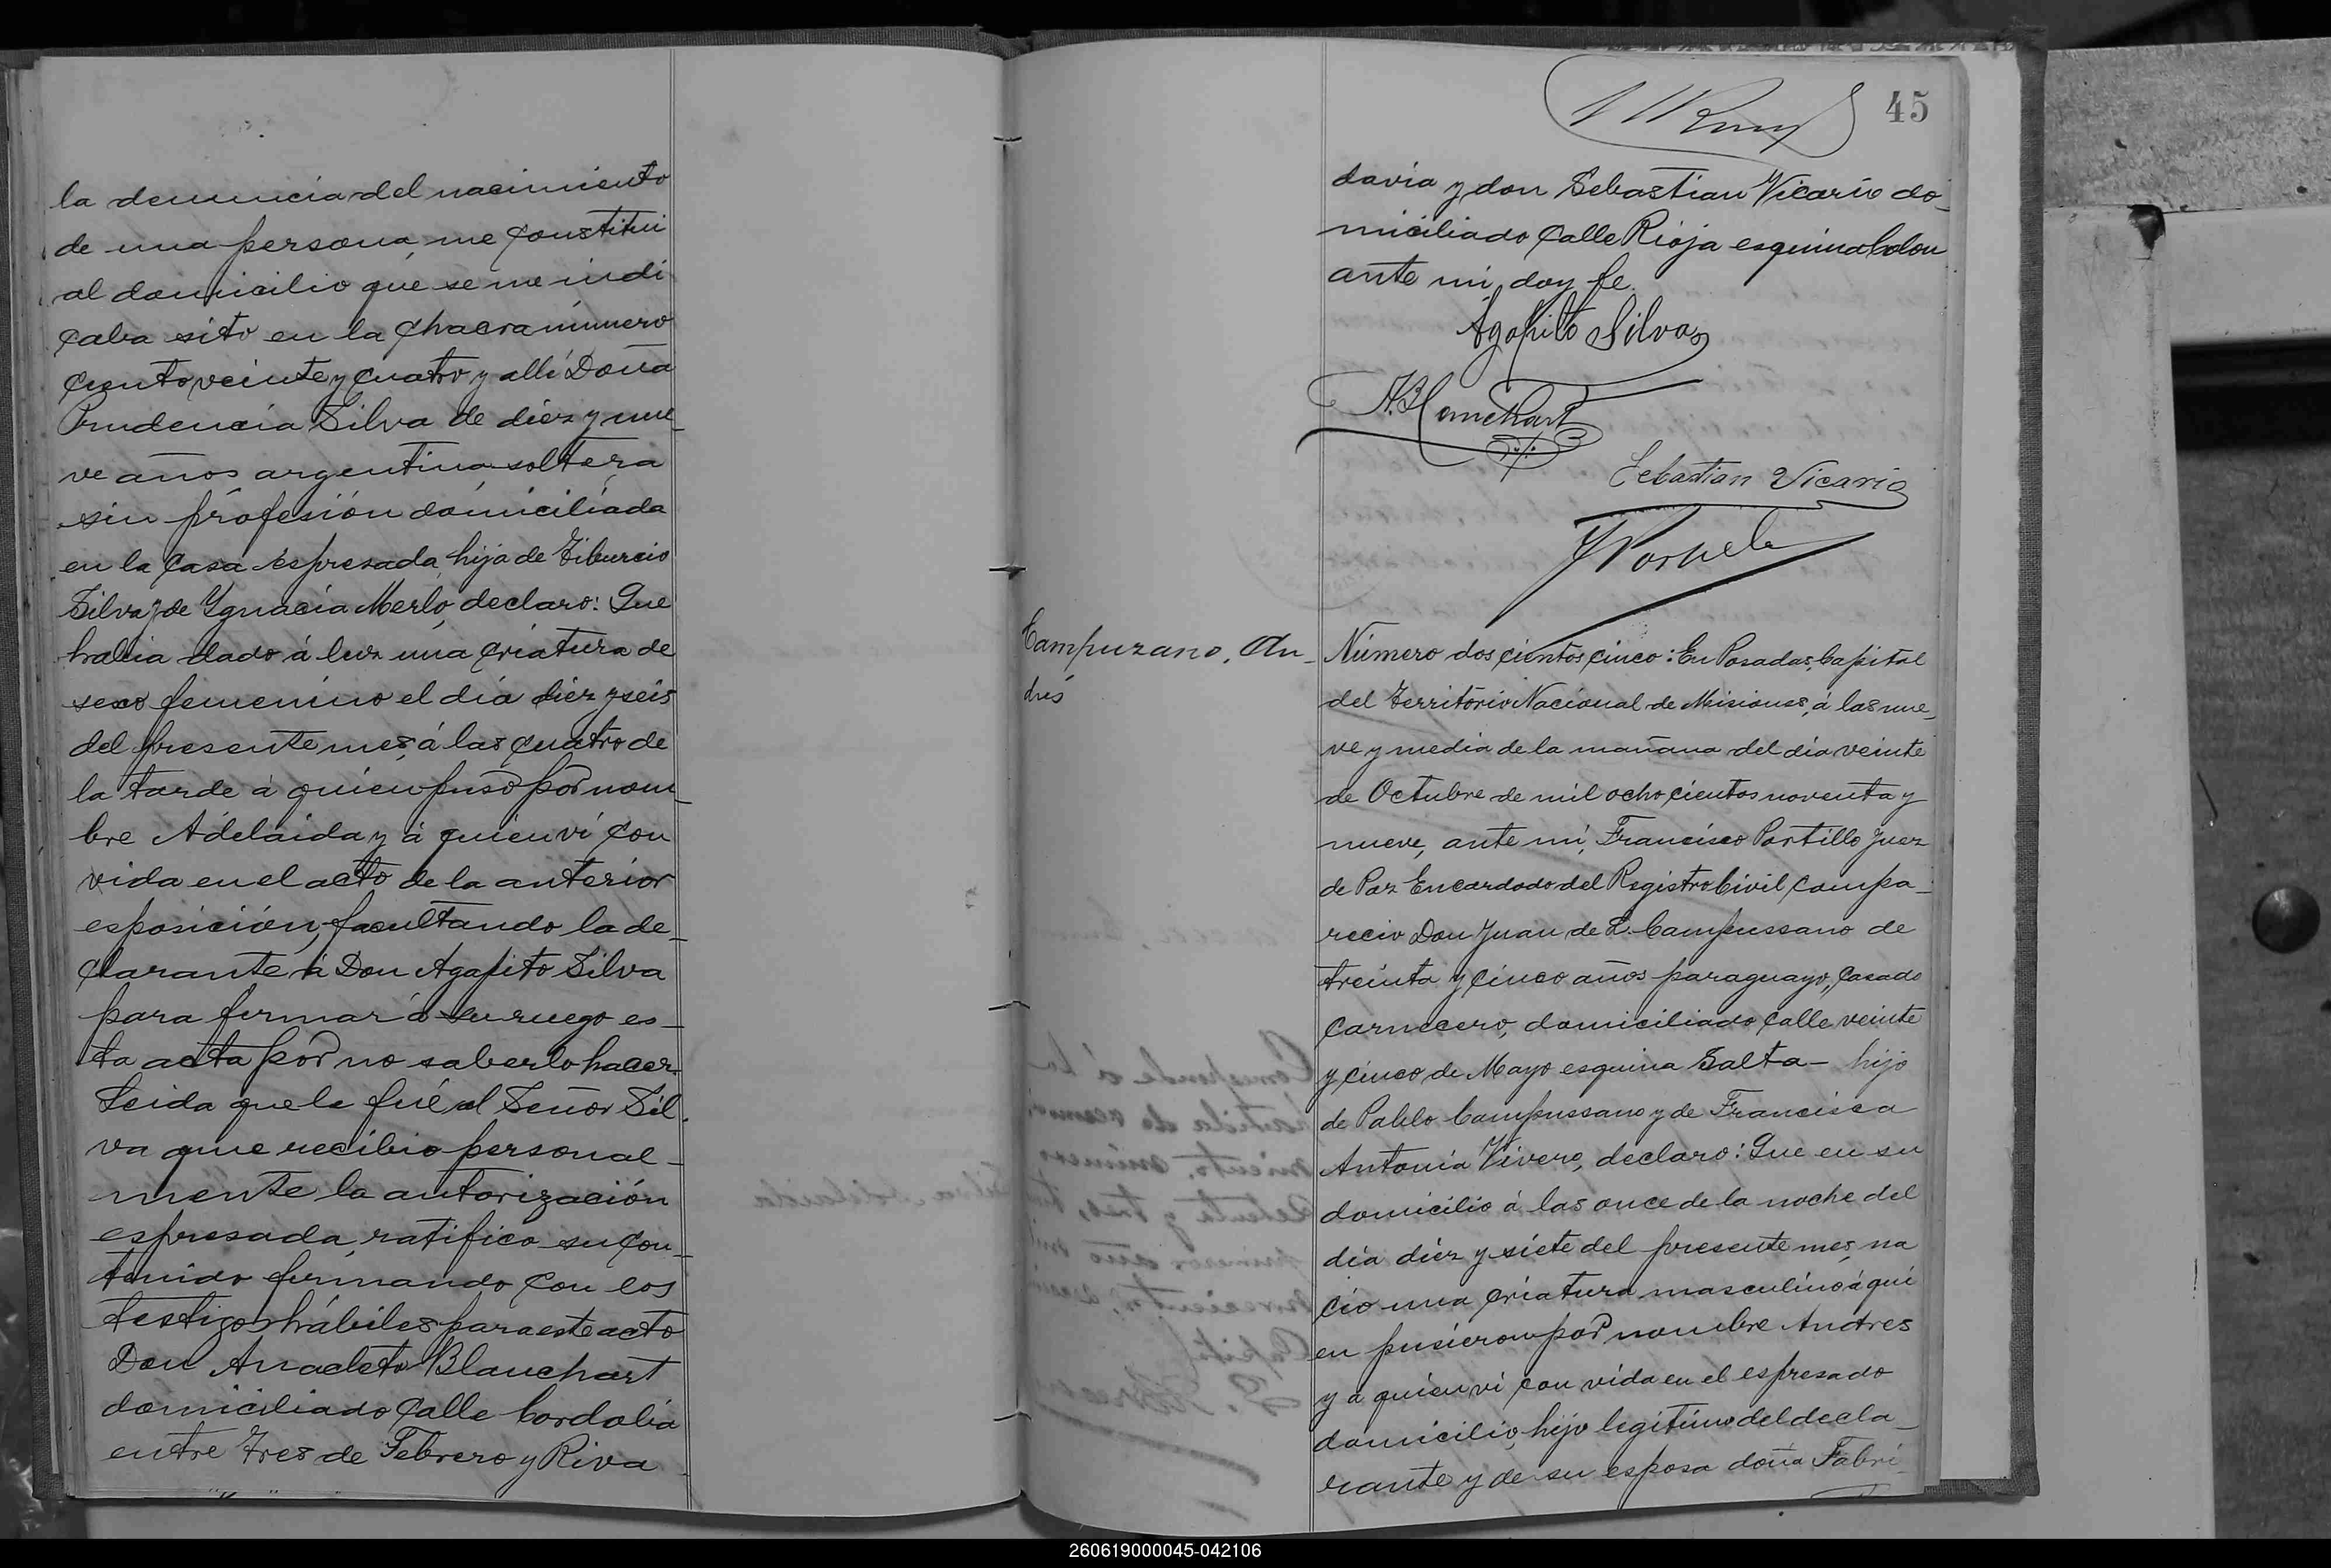 la denuncia del nacimiento
de una persona, me constitui
al domicilio que se me indi
caba sito en la chacra número
ciento veinte y cuatro y alli Doña
Prudencia Silva de diez y nue_
ve años argentina soltera
sin profesión domiciliada
en la casa espresada, hija de Tiburcio
Silva y de Ygnacia Merlo, declaro: Que
habia dado á luz una criatura de
sexo femenino el día diez y seis
del presente mes, á las cuatro de
la tarde á quien puso por nom_
bre Adelaida y á quien vi con
vida en el acto de la anterior
esposición, facultando la de_
clarante á Don Agapito Silva
para firmar á su ruego es_
ta acta por no saberlo hacer.
Leida que le fué al Señor Sil_
va que recibio personal_
mente la autorización
espresada, ratifico su con_
tenido firmando con los
testigos hábiles para este acto
Don Anacleto Blanchart
domiciliado calle Cordoba
entre Tres de Febrero y Riva
45
davia y don Sebastian Vicario do_
miciliado calle Rioja esquina Colon
ante mi, doy fe.
Agapito Silva
A. Blanchart
Sebastian Vicario
Campuzano, An_
drés
Número dos cientos cinco: En Posadas, Capital
del Territorio Nacional de Misiones, á las nue_
ve y media de la mañana del día veinte
de Octubre de mil ocho cientos noventa y
nueve, ante mi, Francisco Portillo Juez
de Paz Encardado del Registro Civil, compa_
recio Don Juan de L. Campussano de
treinta y cinco años paraguayo, casado
carnecero, domiciliado calle veinte
y cinco de Mayo esquina Salta— hijo
de Pablo Campussano y de Francisca
Antonia Vivero, declaro: Que en su
domicilio á las once de la noche del
día diez y siete del presente mes, na
cio una criatura masculino á qui
en pusieron por nombre Andres
y a quien vi con vida en el espresado
domicilio, hijo legitimo del decla_
rante y de su esposa doña Fabri_
260619000045-042106